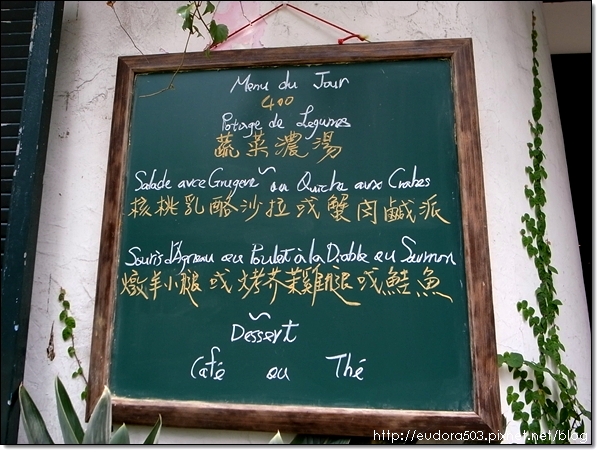 Menu du Jour
400
Potage de Legumes
蔬菜濃湯
Salade avec Gruyere ou Quiche aux Crabes
核桃乳酪沙拉或蟹肉鹹派
Souris d'Agneau ou Poulet à la Diable ou Saumon
燉羊小腿或烤芥茉雞腿或鮭魚
Dessert
Café ou Thé
http://eudora503.pixnet.net/blog